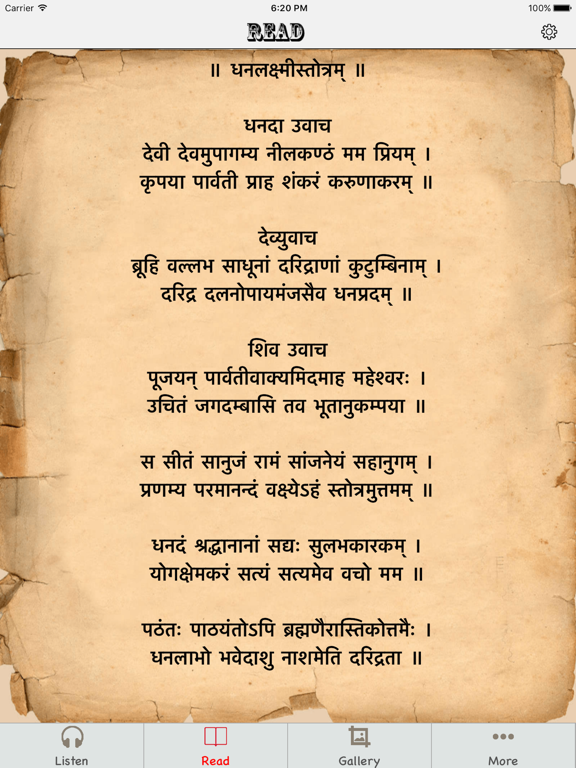 Carrier 6:20 PM 100%
READ
॥ धनलक्ष्मीस्तोत्रम् ॥
धनदा उवाच
देवी देवमुपागम्य नीलकण्ठं मम प्रियम् ।
कृपया पार्वती प्राह शंकरं करुणाकरम् ॥
देव्युवाच
ब्रूहि वल्लभ साधूनां दरिद्राणां कुटुम्बिनाम् ।
दरिद्र दलनोपायमंजसैव धनप्रदम् ॥
शिव उवाच
पूजयन् पार्वतीवाक्यमिदमाह महेश्वरः ।
उचितं जगदम्बासि तव भूतानुकम्पया ॥
स सीतं सानुजं रामं सांजनेयं सहानुगम् ।
प्रणम्य परमानन्दं वक्ष्येऽहं स्तोत्रमुत्तमम् ॥
धनदं श्रद्धानानां सद्यः सुलभकारकम् ।
योगक्षेमकरं सत्यं सत्यमेव वचो मम ॥
पठंतः पाठयंतोऽपि ब्रह्मणैरास्तिकोत्तमैः ।
धनलाभो भवेदाशु नाशमेति दरिद्रता ॥
Listen Read Gallery More